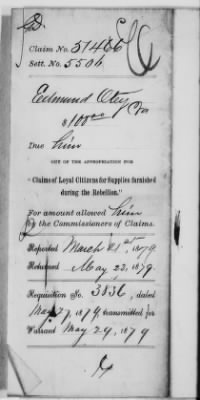 Claim No. 51466
Sett. No. 5506
Edmund Otey
$100.00
Due him
OUT OF THE APPROPRIATION FOR
"Claims of Loyal Citizens for Supplies furnished
during the Rebellion."
For amount allowed him
by the Commissioners of Claims.
Reported March 21st, 1879
Returned May 23, 1879.
Requisition No. 3836, dated
May 27, 1879, transmitted for
Warrant May 29, 1879